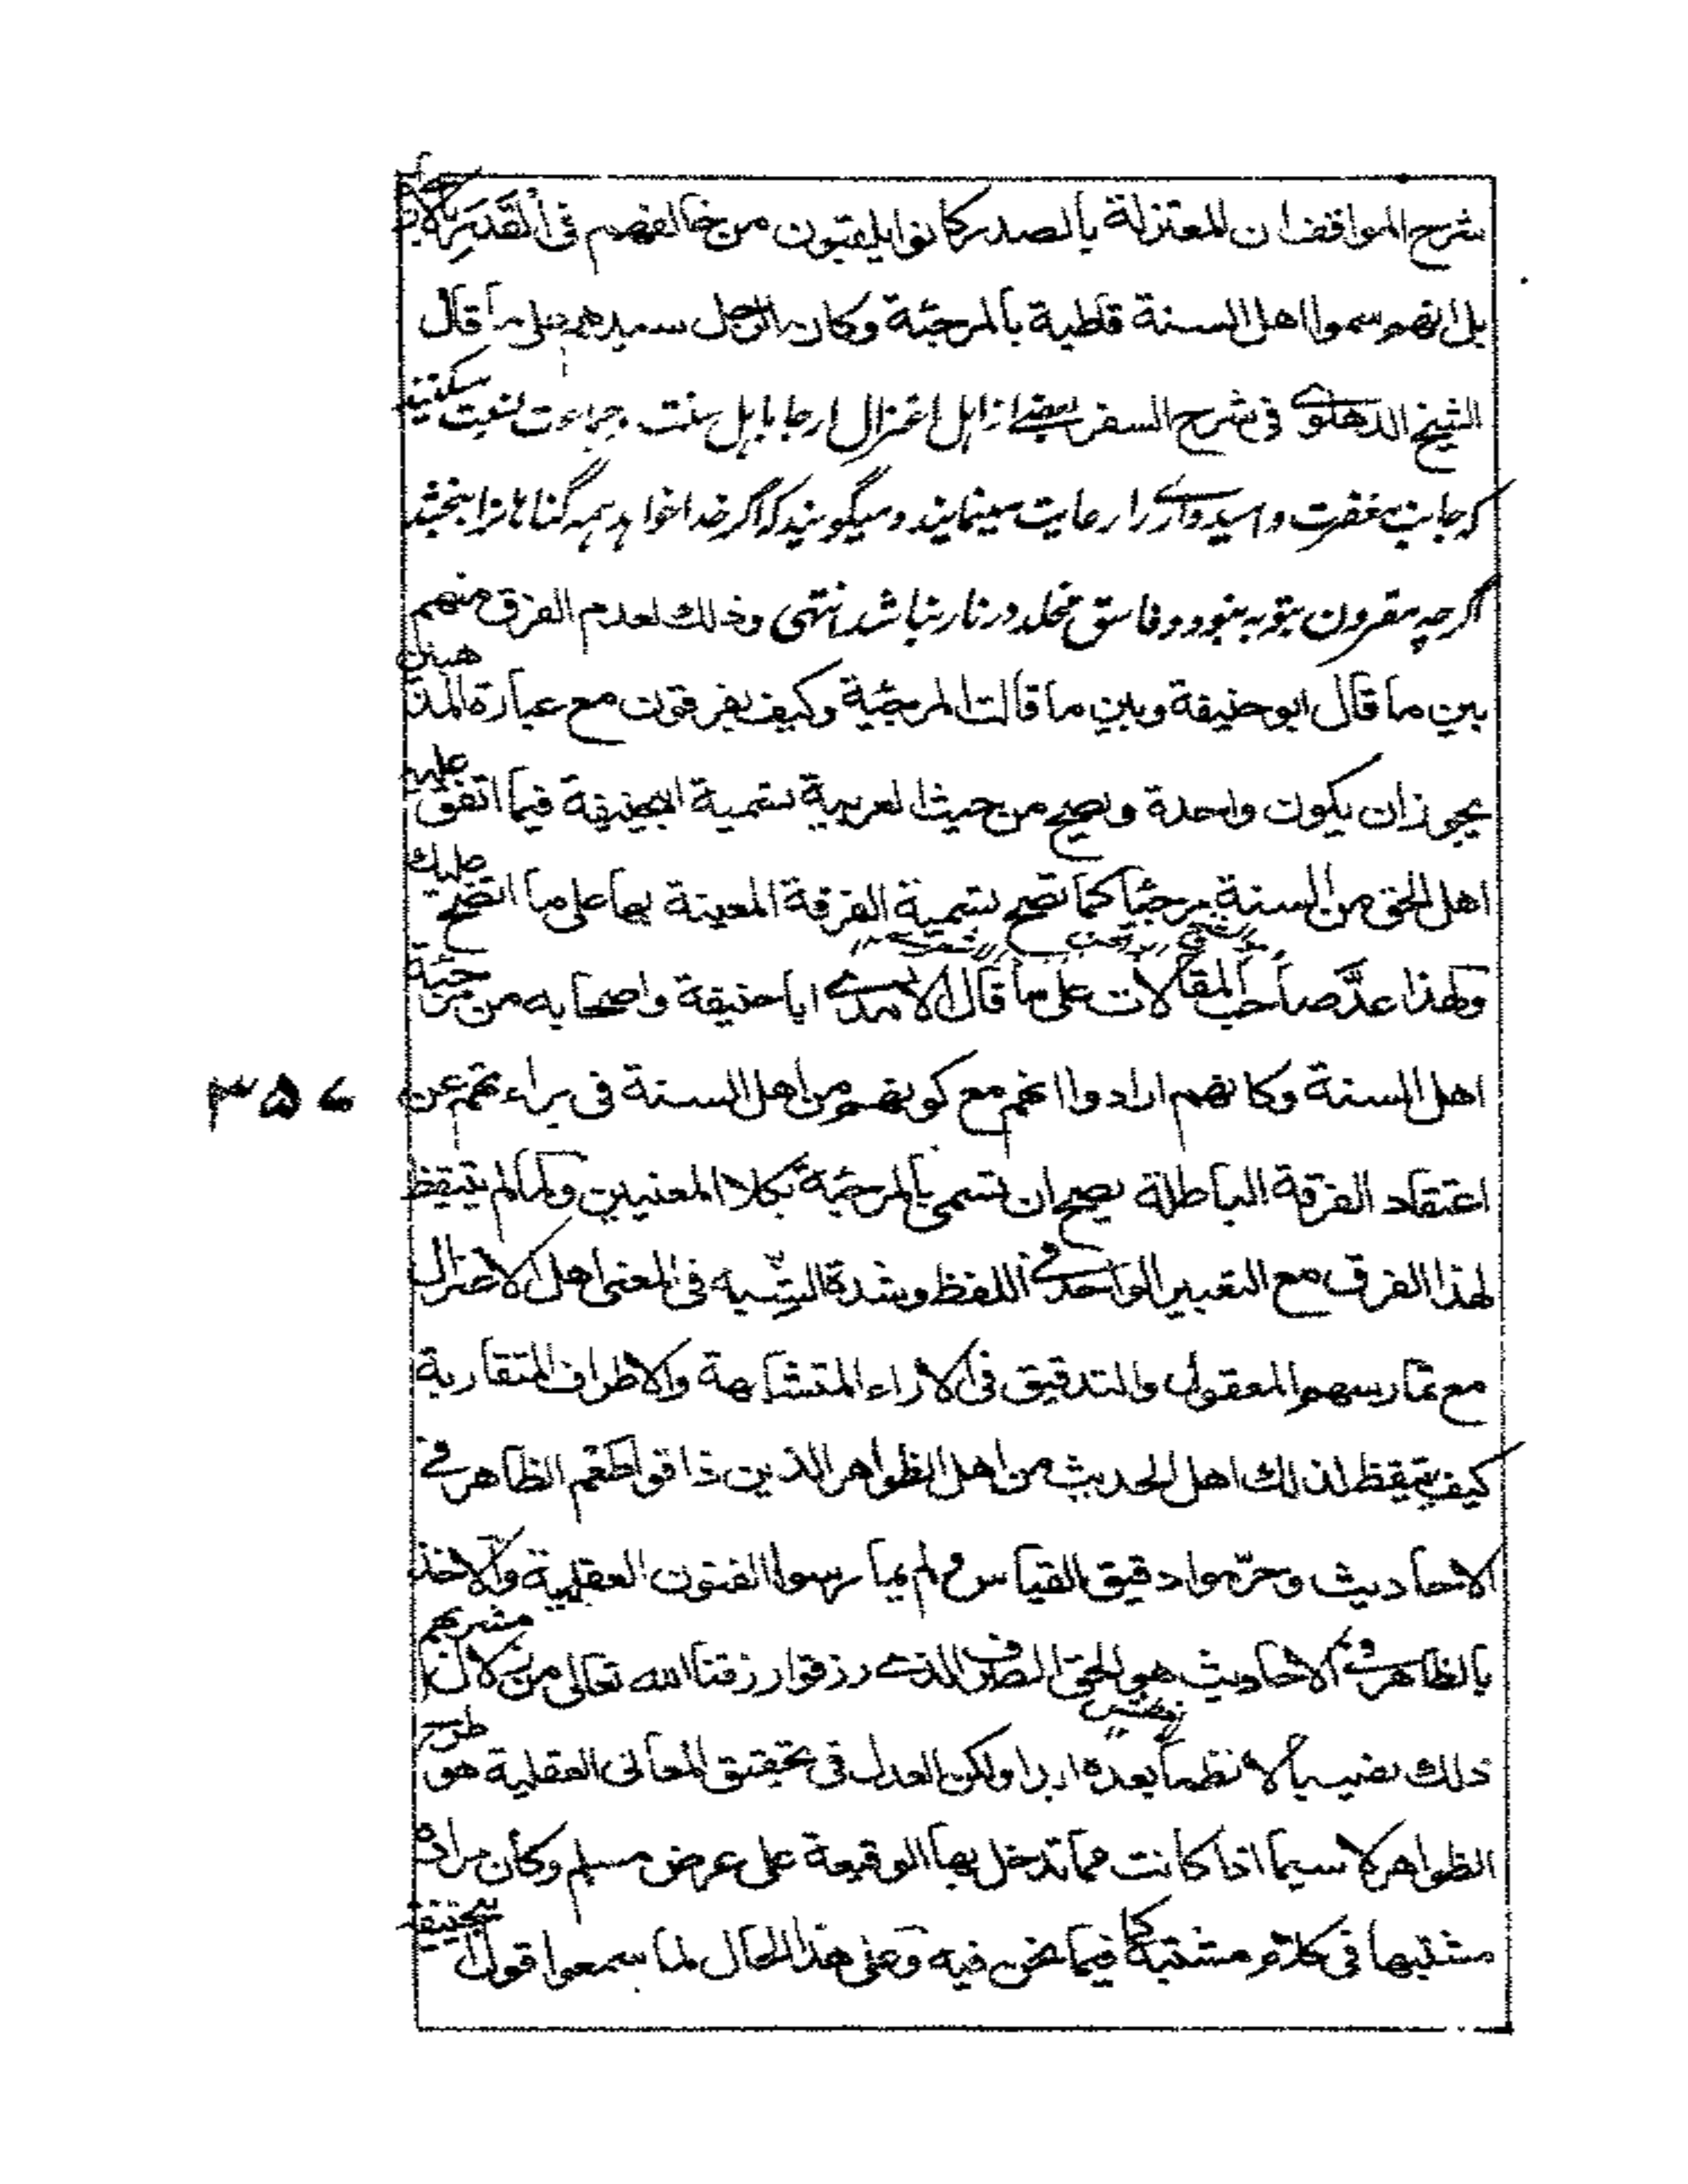 شرح المواقف ان المعتزلة بالصدر كانوا يلقبون من خالفهم في القدر
بل انهم سموا اهل السنة قاطبة بالمرجئة وكان على ما قال
الشيخ الدهلوي في شرح السفر بعضے از اہل اعتزال ارجا باہل سنت وجماعت نسبت میکنند
کہ جانب مغفرت وامیدواری را رعایت مینمایند ومیگویند کہ اگر خدا خواہد ہمہ گناہان را بخشد
اگرچہ مقرون بتوبہ نبود وفاسق مخلد در نار نباشد انتهى وذلك لعدم الفرق منهم
بين ما قال ابو حنيفة وبين ما قالت المرجئة وكيف يفرقون مع عبارة المذهبان
يجوز ان يكون واحدة ويصح من حيث العربية تسمية ابيحنيفة فيما اتفق عليه
اهل الحق من السنة مرجئا كما تصح تسمية الفرقة المعينة بها على ما اتضح عليك
ولهذا عدّ صاحب المقالات على ما قال الآمدي ابا حنيفة واصحابه من مرجئة
اهل السنة وكانهم ارادوا انهم مع كونهم من اهل السنة في براءتهم عن
٣٥٤
اعتقاد الفرقة الباطلة يصح ان تسمى بالمرجئة بكلا المعنيين ولما لم يتيقظ
لهذا الفرق مع التعبير الواحد في اللفظ وشدة التشبيه في المعنى اهل الاعتزال
مع تمارسهم المعقول والتدقيق في الآراء المتشابهة والاطراف المتقاربة
كيف يتيقظ لذلك اهل الحديث من اهل الظواهر الذين ذاقوا طعم الظاهر في
الاحاديث وحرّموا دقيق القياس ولم يمارسوا الفنون العقلية والاخذ
بالظاهر في الاحاديث هو الحق الصرف الذي رزقوا رزقنا الله تعالى من زلال مشربهم
ذلك نصيبا لا نظمأ بعده ابدا ولكن العدل في تحقيق المعاني العقلية هو طرح
الظواهر لا سيما اذا كانت مما تدخل بها الوقيعة على عرض مسلم وكان مراده
مشتبها في كلام مشتبه كما فيما نحن فيه وعلى هذا الحال لما سمعوا قول